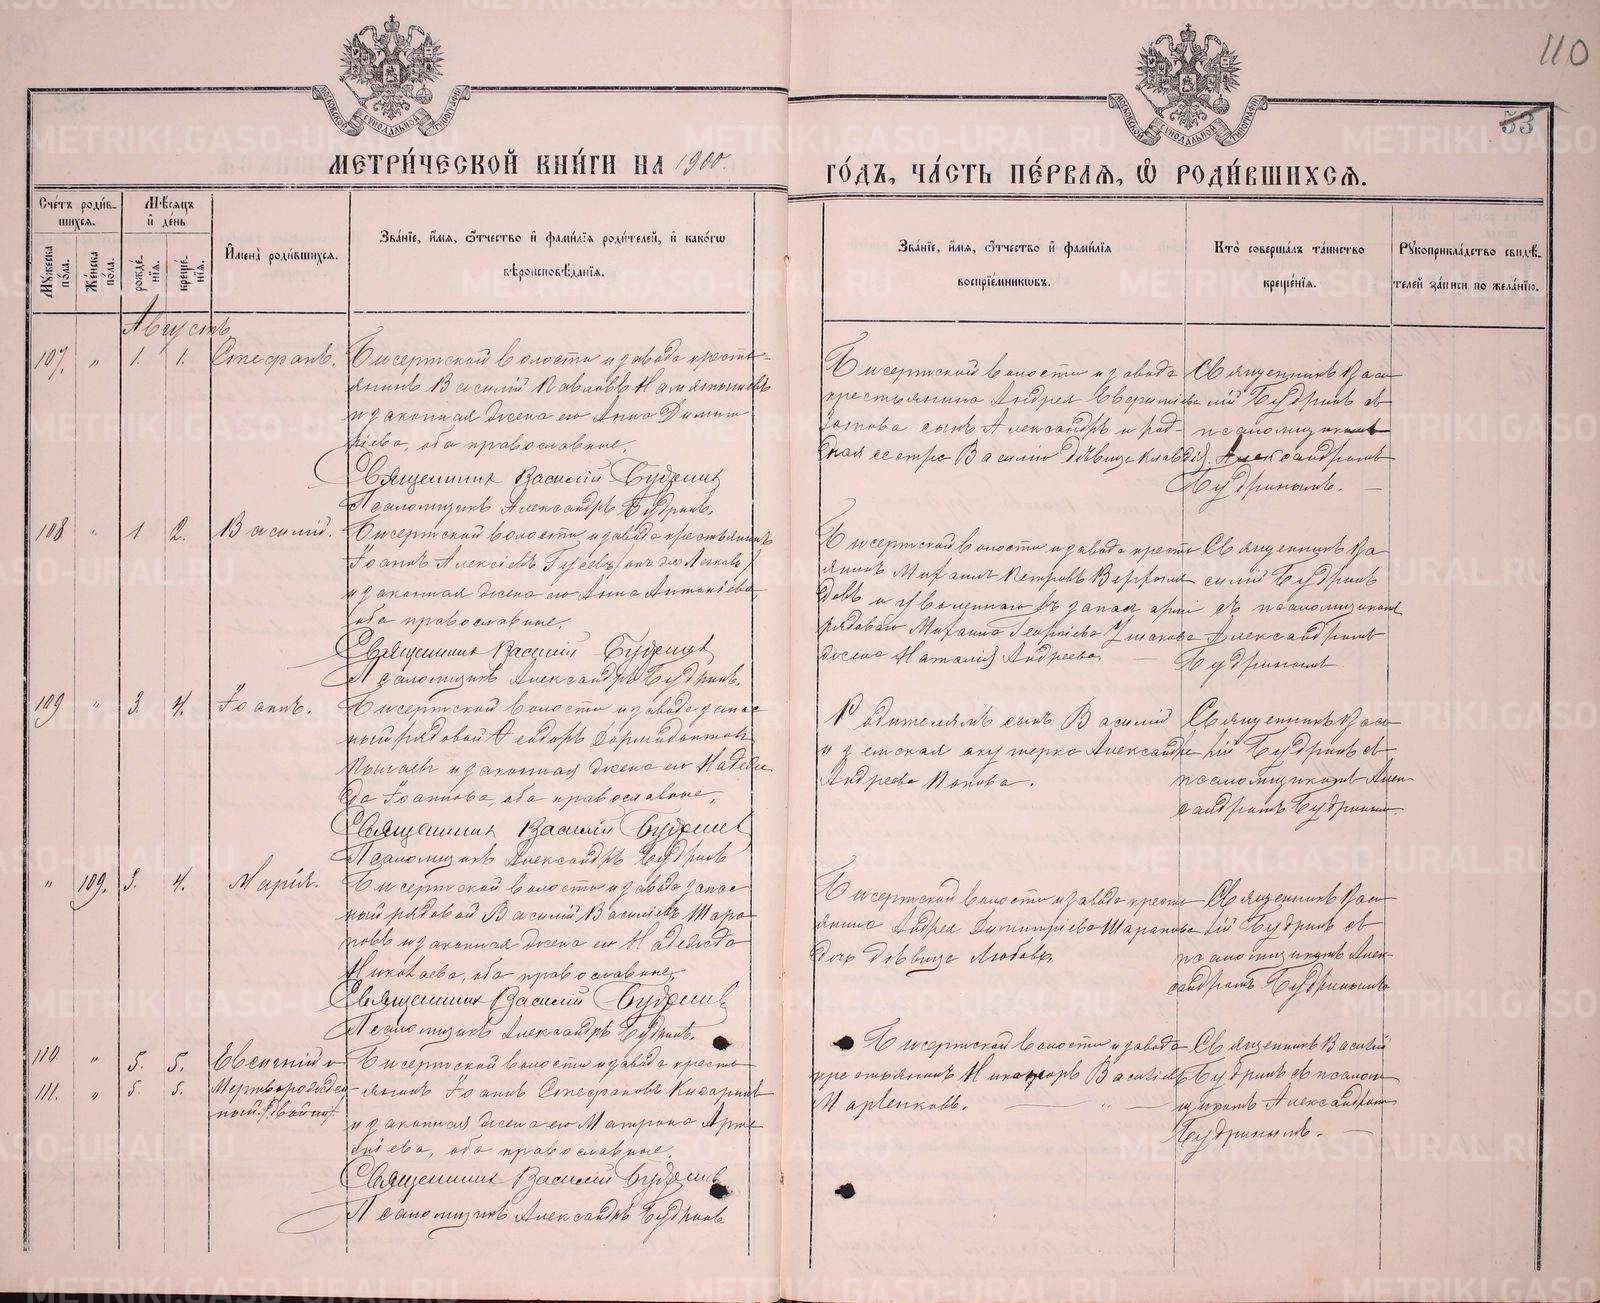 110
53
МЕТРИ́ЧЕСКОЙ КНИ́ГИ НА 1900.
ГО́ДЪ, ЧА́СТЬ ПЕ́РВАѦ, Ѽ РОДИ́ВШИХСѦ.
Сче́тъ роди́в-
шихся.
Мужеска по́ла.
Же́нска по́ла.
Мѣ́сяцъ и де́нь
рожде́нїя.
креще́нїя.
Имена̀ роди́вшихся.
Зва́нїе, и́мя, ѻ́тчество и фами́лїя роди́телей, и како́гѡ
вѣроисповѣ́данїя.
Зва́нїе, и́мя, ѻ́тчество и фами́лїя
воспрїе́мникѡвъ.
Кто̀ соверша́лъ та́инство
креще́нїя.
Рукоприкла́дство свидѣ́-
телей за́писи по жела́нїю.
Августъ
107. " 1. 1. Стефанъ.
Бисертской волости и завода кресть-
янинъ Василій Павловъ
и законная жена его Анна Димит-
ріева, оба православные.
Священникъ Василій Будринъ
Псаломщикъ Александръ Будринъ.
Бисертской волости и завода
крестьянина Андрея
сынъ Александръ и род-
ная сестра Василію дѣвица Клавдія.
Священникъ Васи-
лій Будринъ съ
псаломщикомъ
Александромъ
Будринымъ.
108 " 1 2. Василій.
Бисертской волости и завода крестьянинъ
Іоаннъ Алексіевъ Гусевъ
и законная жена его Анна Антоніева,
оба православные.
Священникъ Василій Будринъ
Псаломщикъ Александръ Будринъ.
Бисертской волости и завода кресть-
янинъ Михаилъ Петровъ
и уволеннаго въ запасъ арміи
рядоваго Михаила Георгіева Ушакова
жена Наталія Андреева.
Священникъ Ва-
силій Будринъ
съ псаломщикомъ
Александромъ
Будринымъ
109 " 3. 4. Іоаннъ.
Бисертской волости и завода запас-
ный рядовой Ѳеодоръ
и законная жена его Надеж-
да Іоаннова, оба православные.
Священникъ Василій Будринъ
Псаломщикъ Александръ Будринъ
Родителямъ сынъ Василій
и земская акушерка Александра
Андреева Попова.
Священникъ Васи-
лій Будринъ съ
псаломщикомъ Алек-
сандромъ Будринымъ
" 109. 3. 4. Марія.
Бисертской волости и завода запас-
ный рядовой Василій Василіевъ Шара-
повъ и законная жена его Надежда
Николаева, оба православные.
Священникъ Василій Будринъ
Псаломщикъ Александръ Будринъ.
Бисертской волости и завода кресть-
янина Андрея Димитріева Шарапова
дочь дѣвица Любовь.
Священникъ Васи-
лій Будринъ съ
псаломщикомъ Алек-
сандромъ Будринымъ
110. " 5. 5. Евсигній и
111. " 5. 5. Мертворожден-
ный (двойни)
Бисертской волости и завода кресть-
янинъ Іоаннъ Стефановъ
и законная жена его Матрона Арте-
міева, оба православные.
Священникъ Василій Будринъ
Псаломщикъ Александръ Будринъ
Бисертской волости и завода
крестьянинъ Никаноръ Василіевъ
Священникъ Василій
Будринъ съ псалом-
щикомъ Александромъ
Будринымъ.
METRIKI.GASO-URAL.RU